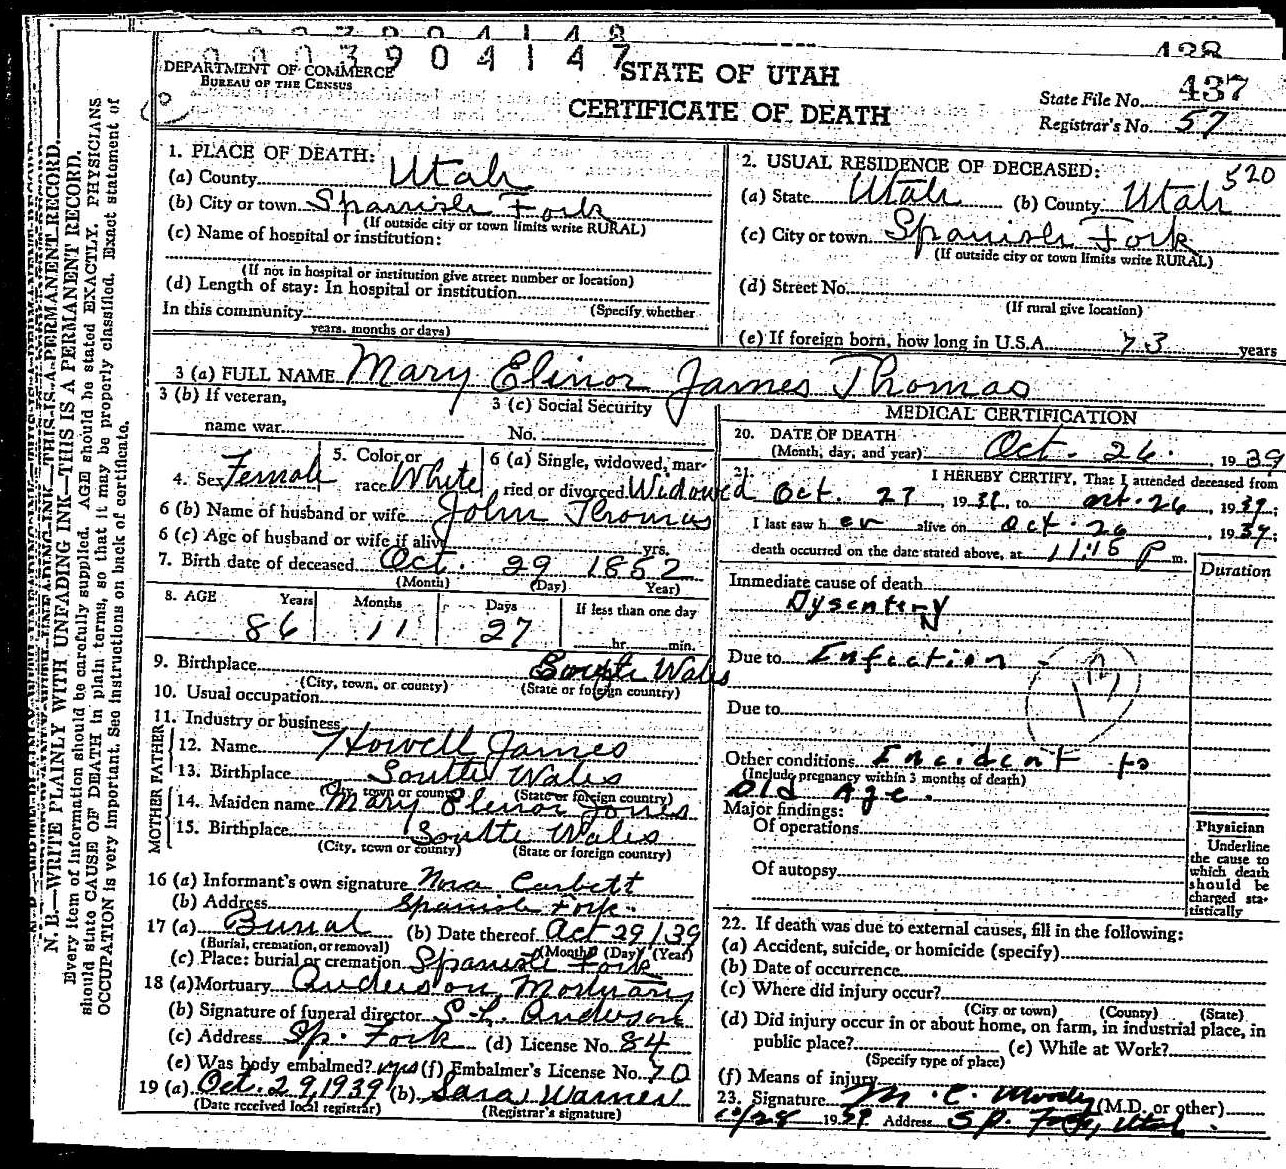 N. B.—WRITE PLAINLY WITH UNFADING INK—THIS IS A PERMANENT RECORD.
Every item of information should be carefully supplied. AGE should be stated EXACTLY. PHYSICIANS
should state CAUSE OF DEATH in plain terms, so that it may be properly classified. Exact statement of
OCCUPATION is very important. See instructions on back of certificate.
3904147
438
DEPARTMENT OF COMMERCE
BUREAU OF THE CENSUS
STATE OF UTAH
CERTIFICATE OF DEATH
State File No. 437
Registrar's No. 57
1. PLACE OF DEATH:
(a) County Utah
(b) City or town Spanish Fork
(If outside city or town limits write RURAL)
(c) Name of hospital or institution:
(If not in hospital or institution give street number or location)
(d) Length of stay: In hospital or institution
(Specify whether
In this community
years, months or days)
2. USUAL RESIDENCE OF DECEASED: 520
(a) State Utah (b) County Utah
(c) City or town Spanish Fork
(If outside city or town limits write RURAL)
(d) Street No.
(If rural give location)
(e) If foreign born, how long in U.S.A. 73 years
3 (a) FULL NAME Mary Elinor James Thomas
3 (b) If veteran,
name war
3 (c) Social Security
No.
4. Sex Female
5. Color or
race White
6 (a) Single, widowed, mar-
ried or divorced Widowed
6 (b) Name of husband or wife John Thomas
6 (c) Age of husband or wife if alive yrs.
7. Birth date of deceased Oct. 29 1852
(Month) (Day) Year)
8. AGE Years Months Days If less than one day
86 11 27 hr. min.
9. Birthplace South Wales
(City, town, or county) (State or foreign country)
10. Usual occupation
11. Industry or business
FATHER
12. Name Howell James
13. Birthplace South Wales
(City, town or county) (State or foreign country)
MOTHER
14. Maiden name Mary Elenor Jones
15. Birthplace South Wales
(City, town or county) (State or foreign country)
16 (a) Informant's own signature Nora Corbett
(b) Address Spanish Fork.
17 (a) Burial (b) Date thereof Oct 29/39
(Burial, cremation, or removal) (Month) (Day) (Year)
(c) Place: burial or cremation Spanish Fork
18 (a) Mortuary Anderson Mortuary
(b) Signature of funeral director Anderson
(c) Address Sp. Fork (d) License No. 84
(e) Was body embalmed? yes (f) Embalmer's License No. 70
19 (a) Oct. 29, 1939 (b) Sara Warner
(Date received local registrar) (Registrar's signature)
MEDICAL CERTIFICATION
20. DATE OF DEATH
(Month, day, and year) Oct. 26. 1939
21. I HEREBY CERTIFY, That I attended deceased from
Oct. 27, 19 to Oct. 26, 1939;
I last saw her alive on Oct. 26, 1939;
death occurred on the date stated above, at 11:15 P m.
Duration
Immediate cause of death
Dysentery
Due to Infection
Due to
Other conditions Incident to
(Include pregnancy within 3 months of death)
Old Age.
Major findings:
Of operations
Of autopsy
Physician
Underline
the cause to
which death
should be
charged sta-
tistically
22. If death was due to external causes, fill in the following:
(a) Accident, suicide, or homicide (specify)
(b) Date of occurrence
(c) Where did injury occur?
(City or town) (County) (State)
(d) Did injury occur in or about home, on farm, in industrial place, in
public place? (e) While at Work?
(Specify type of place)
(f) Means of injury
23. Signature M. C. Moody (M.D. or other)
10/28 1939 Address Sp. Fork, Utah.